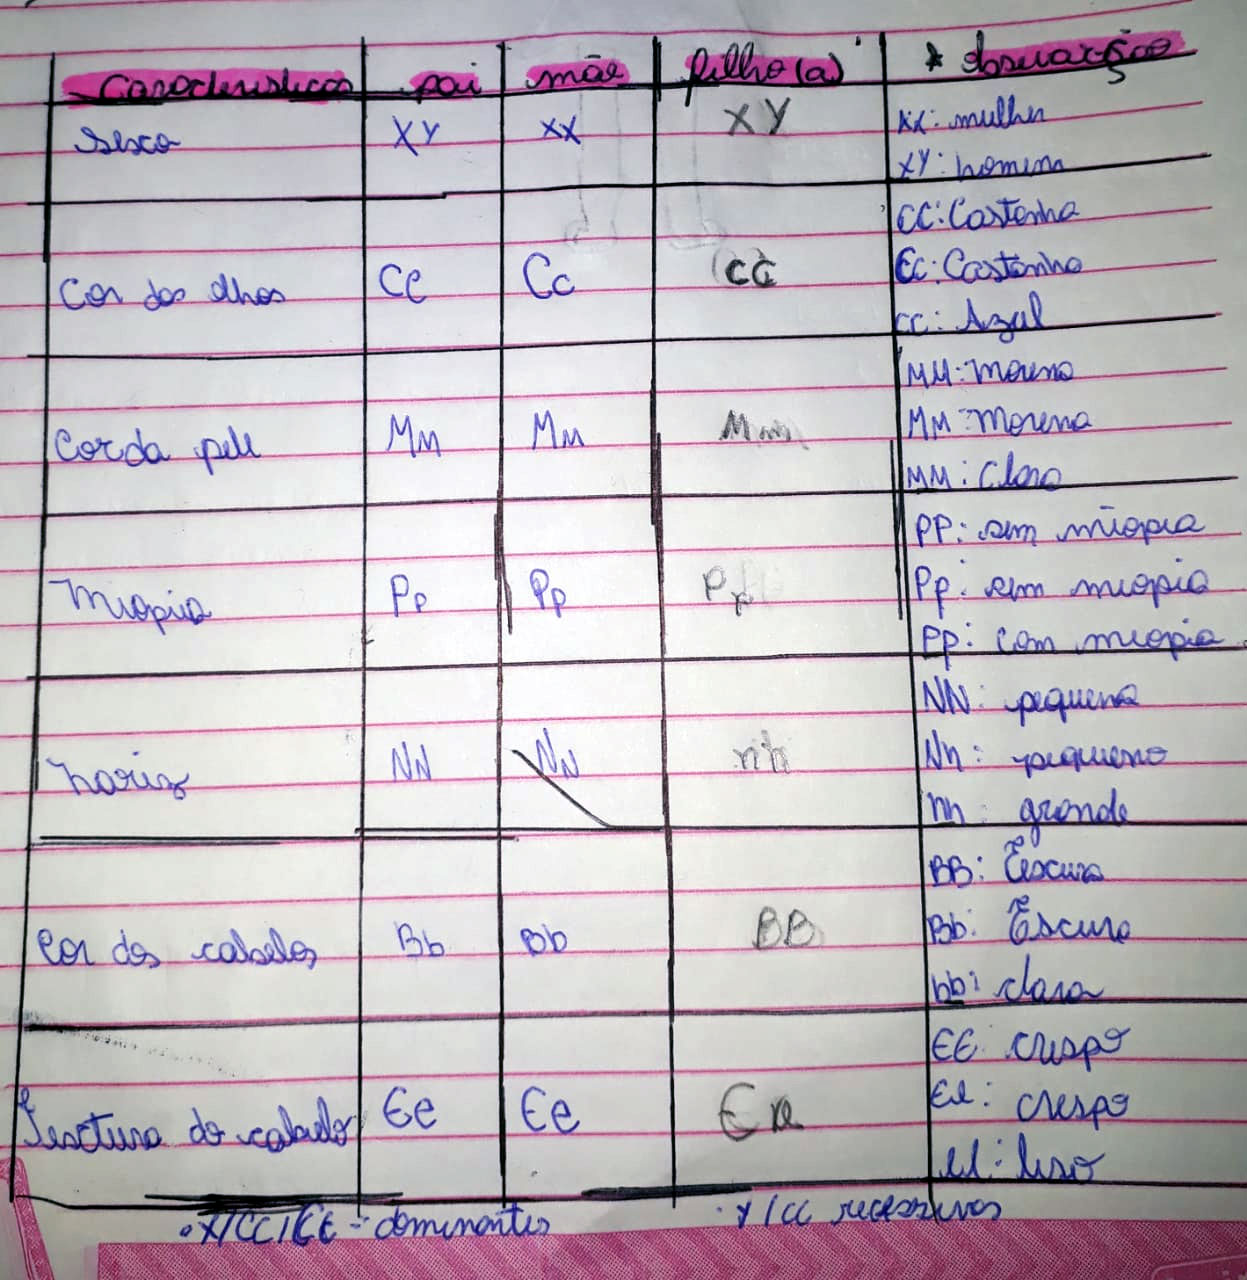 Caracteristicas pai mãe filho(a) * observação
sexo XY XX XY XX: mulher
XY: homem
Cor dos olhos Cc Cc cc CC: Castanho
Cc: Castanho
cc: Azul
Cor da pele Mm Mm Mm MM: moreno
Mm: Morena
MM: Claro
Miopia Pp Pp Pp PP: sem miopia
Pp: sem miopia
Pp: com miopia
Nariz NN Nn nh NN: pequeno
Nn: pequeno
nn: grande
Cor dos cabelos Bb Bb BB BB: Escuro
Bb: Escuro
bb: claro
Textura do cabelo Ee Ee Ee EE: crespo
Ee: crespo
ee: liso
• X/CC/CE - dominantes • Y/cc recessivos